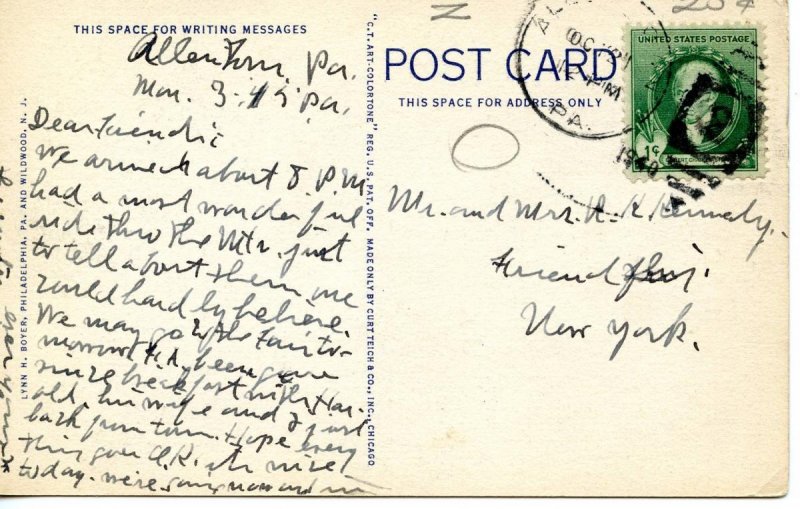 THIS SPACE FOR WRITING MESSAGES
Allentown, Pa.
Mon. 3-45 pa.
Dear Friends:
We arrived about 8 P.M.
had a most wonderful
ride thro the Mts. just
to tell about them one
could hardly believe.
We may go to the Fair to-
morrow been gone
since breakfast with Har-
old, his wife and I just
back from town. Hope every
thing goes O.K. nice
today.
LYNN H. BOYER, PHILADELPHIA, PA. AND WILDWOOD, N. J.
"C.T. ART-COLORTONE" REG. U.S. PAT. OFF. MADE ONLY BY CURT TEICH & CO., INC., CHICAGO
POST CARD
THIS SPACE FOR ADDRESS ONLY
PA.
1940
UNITED STATES POSTAGE
1¢
Mr. and Mrs. R. K. Kennedy.
Friendship.
New York.